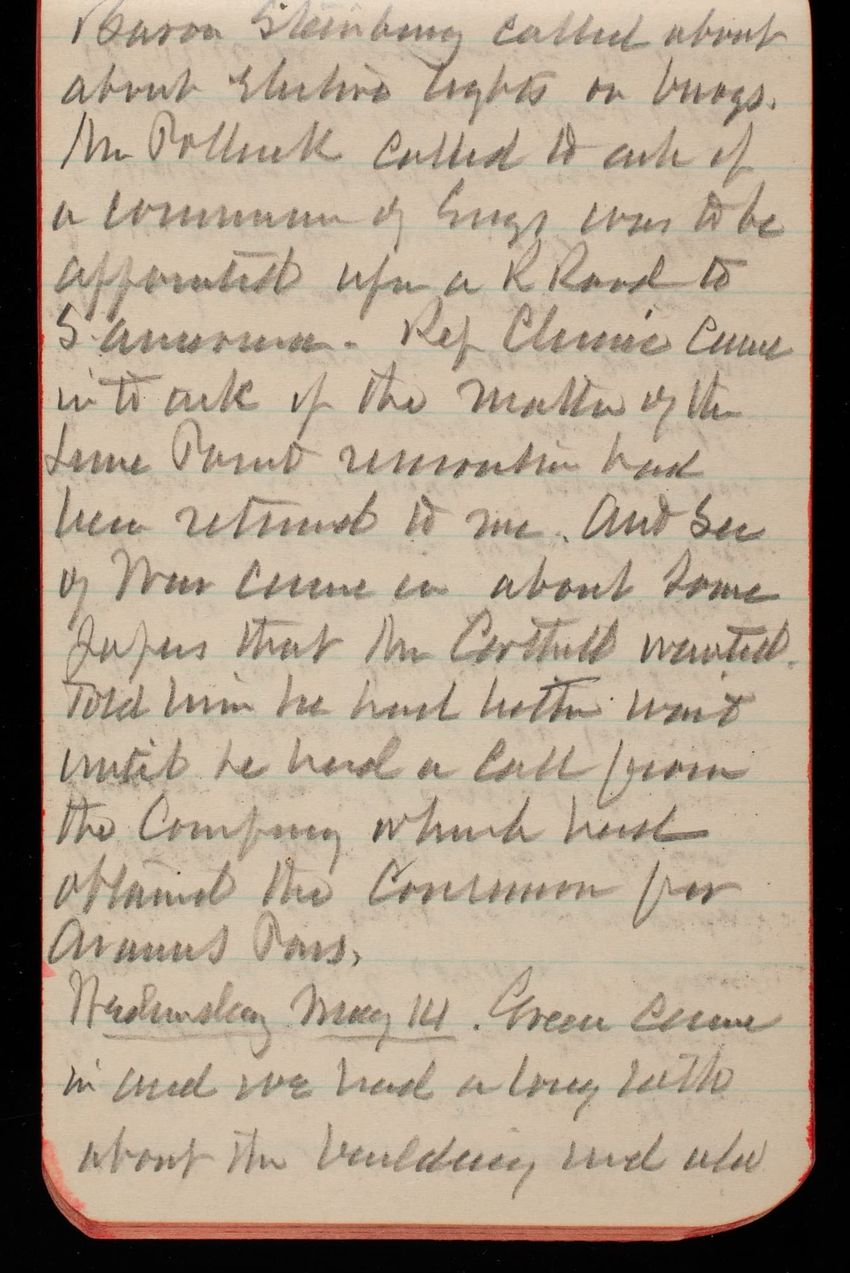 Baron Steinburg called about
about Electric lights on buoys.
Mr Polluck called to ask if
a commission of Engs was to be
appointed upon a R Road to
Rep Clunie came
in to ask if the matter of the
Lime Point reservation had
been returned to me. And Sec
of War came in about some
papers that Mr Corthell wanted.
Told him he had better wait
until he had a call from
the Company which had
obtained the Concession for
Aransas Pass.
Wednesday May 14. Green came
in and we had a long talk
about the building and also